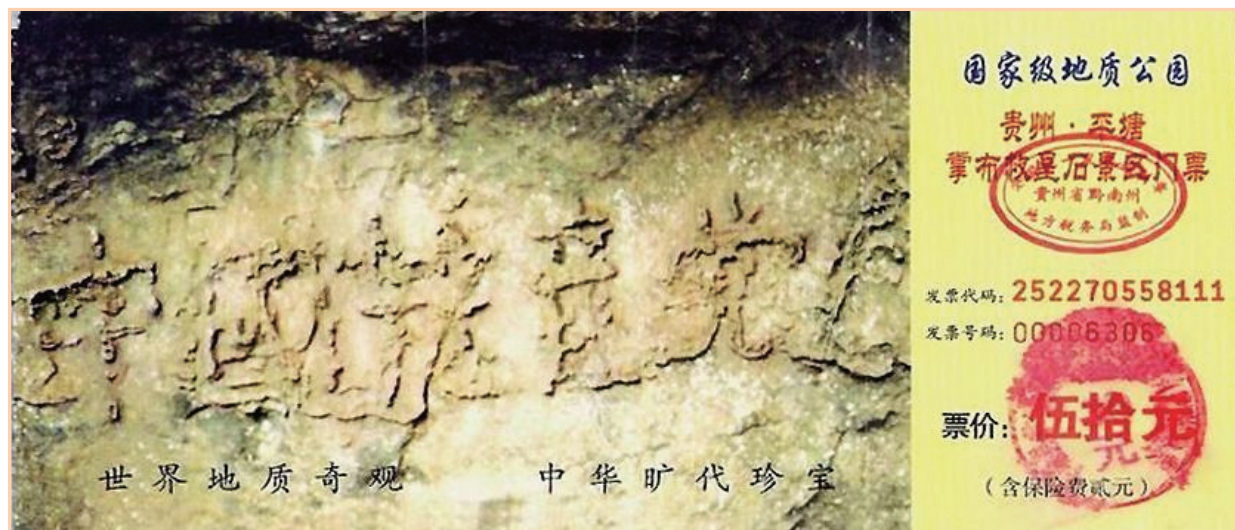 中國共産党亡
世界地质奇观 中华旷代珍宝
国家级地质公园
贵州·平塘
掌布救星石景区门票
贵州省黔南州
地方税务局监制
发票代码:252270558111
发票号码:00006306
票价:伍拾元
(含保险费贰元)